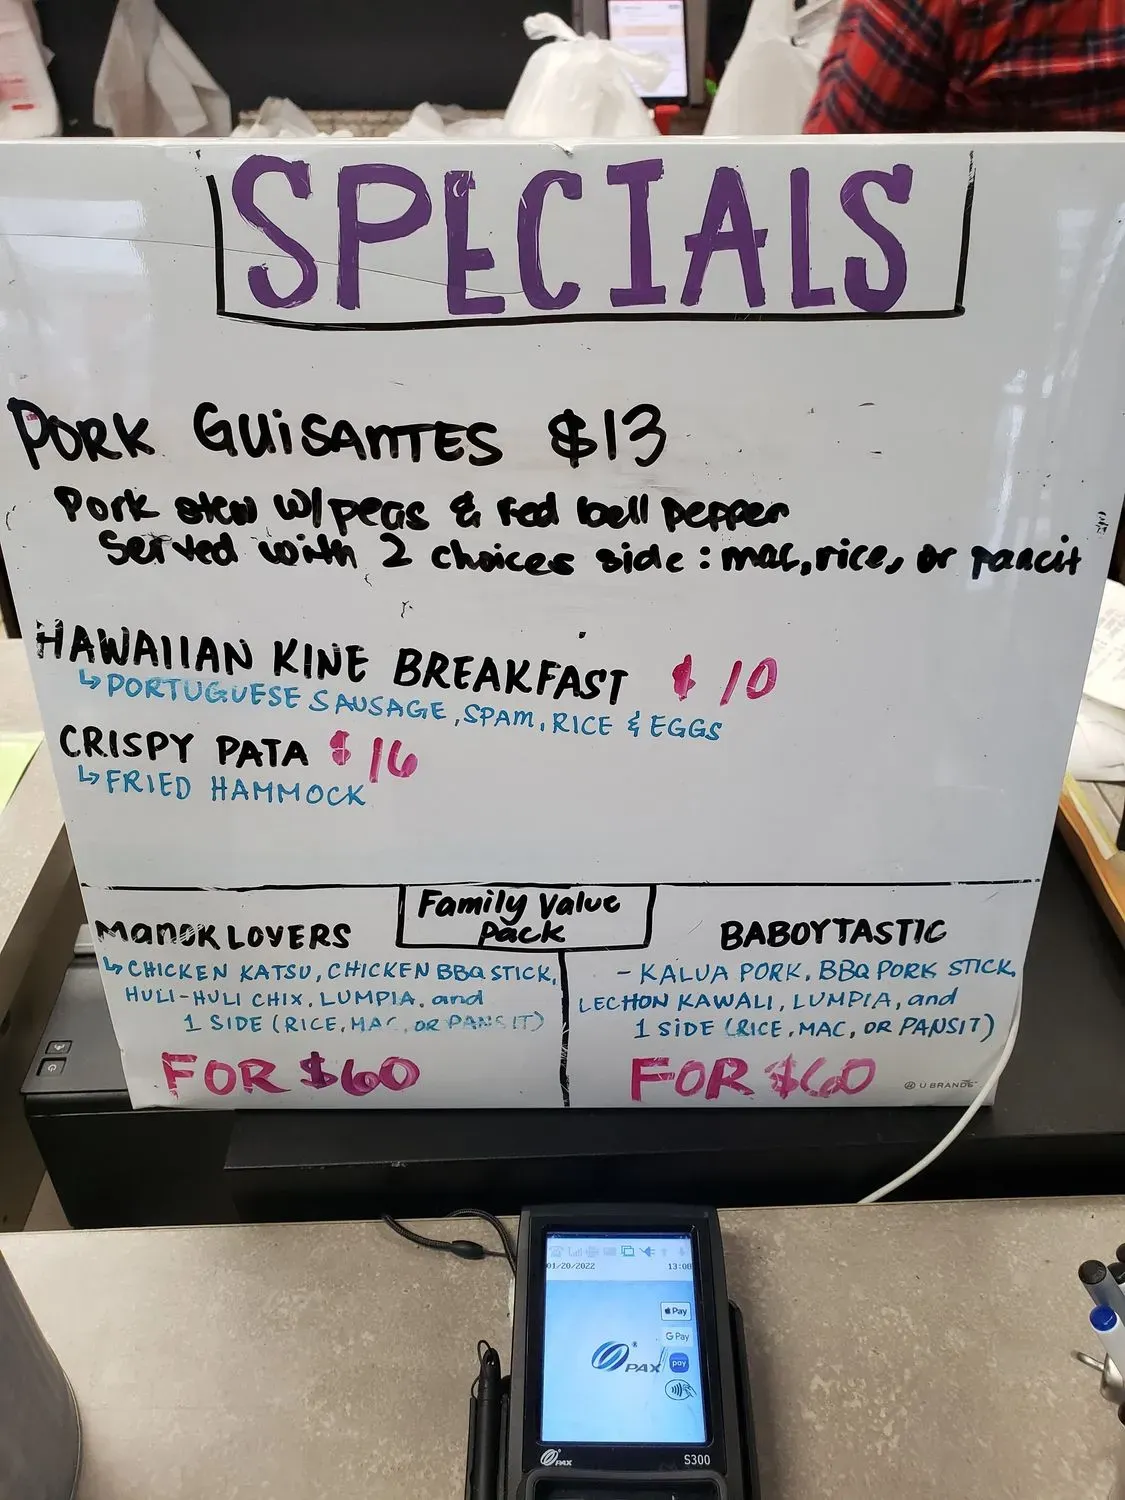 SPECIALS
PORK GUISANTES $13
Pork stew w/peas & red bell pepper
Served with 2 choices side: mac, rice, or pancit
HAWAIIAN KINE BREAKFAST $10
↳PORTUGUESE SAUSAGE, SPAM, RICE & EGGS
CRISPY PATA $16
↳FRIED HAMMOCK
Family Value
Pack
MANOK LOVERS
↳CHICKEN KATSU, CHICKEN BBQ STICK,
HULI-HULI CHIX, LUMPIA, and
1 SIDE (RICE, MAC, OR PANSIT)
FOR $60
BABOYTASTIC
- KALUA PORK, BBQ PORK STICK,
LECHON KAWALI, LUMPIA, and
1 SIDE (RICE, MAC, OR PANSIT)
FOR $60
U BRANDS
01/20/2022 13:08
Pay
G Pay
pay
PAX
PAX S300